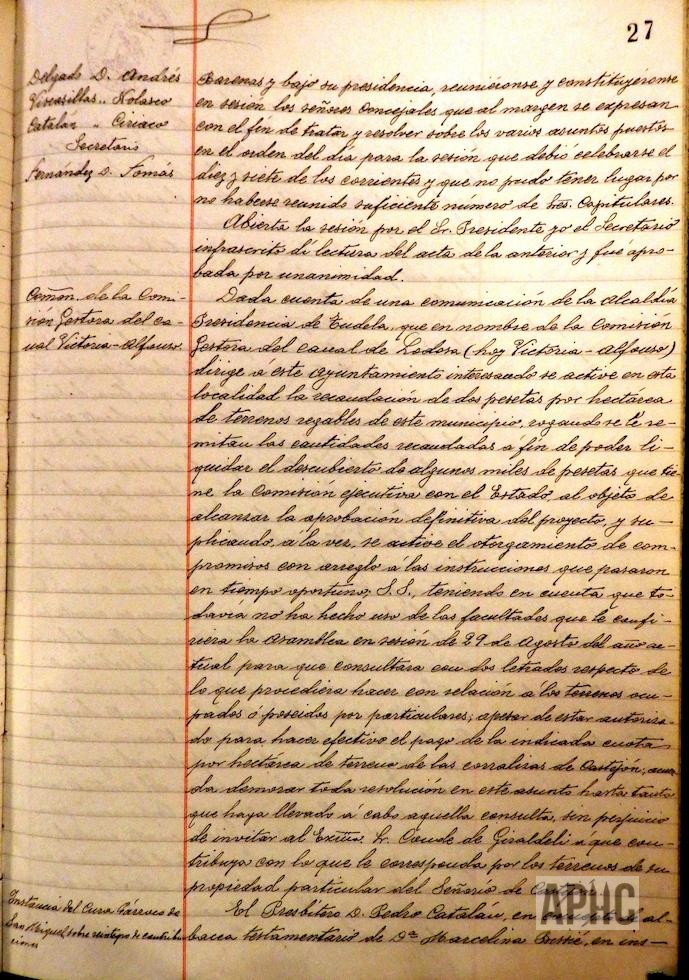 27
Delgado D. Andrés
Vicasillas " Nolasco
Catalán " Ciriaco
Secretario
Fernández D. Tomás
Barenas y bajo su presidencia, reuniéronse y constituyéronse
en sesión los señores Concejales que al margen se expresan
con el fin de tratar y resolver sobre los varios asuntos puestos
en el orden del día para la sesión que debió celebrarse el
diez y siete de los corrientes y que no pudo tener lugar por
no haberse reunido suficiente número de Sres. Capitulares.
Abierta la sesión por el Sr. Presidente yo el Secretario
infrascrito dí lectura del acta de la anterior y fué apro-
bada por unanimidad.
Comon. de la Comi-
sión Gestora del ca-
nal Victoria-Alfonso.
Dada cuenta de una comunicación de la Alcaldía
Presidencia de Tudela, que en nombre de la Comisión
Gestora del canal de Lodosa (hoy Victoria-Alfonso)
dirige a este Ayuntamiento interesando se active en esta
localidad la recaudación de dos pesetas por hectárea
de terrenos regables de este municipio, rogando se le re-
mitan las cantidades recaudadas a fin de poder li-
quidar el descubierto de algunos miles de pesetas que tie-
ne la Comisión ejecutiva con el Estado al objeto de
alcanzar la aprobación definitiva del proyecto, y su-
plicando, á la vez, se active el otorgamiento de com-
promisos con arreglo á las instrucciones que pasaron
en tiempo oportuno; S.S., teniendo en cuenta que to-
davía no ha hecho uso de las facultades que le confi-
riera la Asamblea en sesión de 29 de Agosto del año ac-
tual para que consultara con dos letrados respecto de
lo que procediera hacer con relación a los terrenos ocu-
pados ó poseidos por particulares; apesar de estar autoriza-
do para hacer efectivo el pago de la indicada cuota
por hectárea de terreno de las corralizas de Castejón; acuer-
da demorar toda resolución en este asunto hasta tanto
que haya llevado á cabo aquella consulta, sin perjuicio
de invitar al Excmo. Sr. Conde de Giraldeli á que con-
tribuya con lo que le corresponda por los terrenos de su
propiedad particular del Señorio de
Instancia del Cura Párroco de
San Miguel, sobre reintegro de contribu-
ciones
El Presbitero D. Pedro Catalán, en al-
bacea testamentario de Dª Marcelina en ins-
APHC